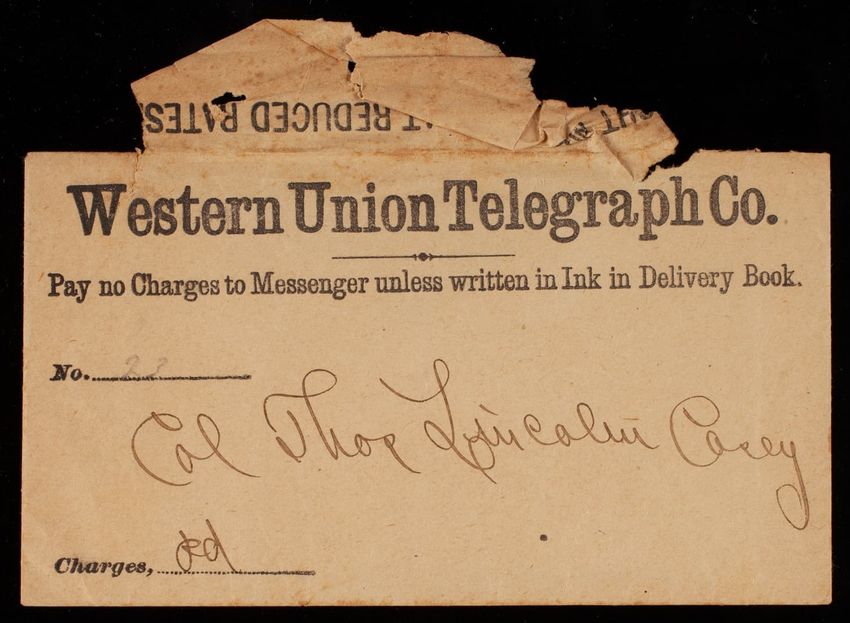 AT REDUCED RATES.
Western Union Telegraph Co.
Pay no Charges to Messenger unless written in Ink in Delivery Book.
No. 23
Col Thos Lincoln Casey
Charges, pd